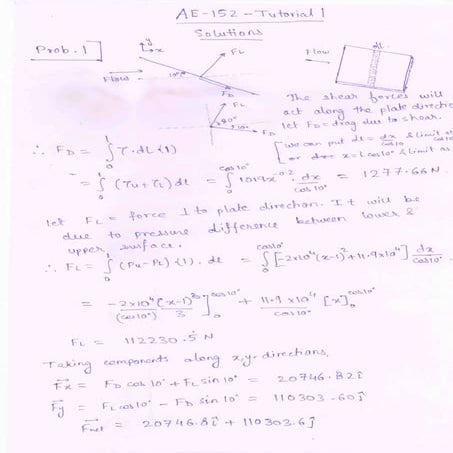 AE-152 - Tutorial 1
Solutions
Prob. 1
y
x
Flow
10°
FL
FD
Flow
dL
FL
90°
10°
FD
The shear forces will
act along the plate directio
let FD = drag due to shear.
∴ FD = ∫₀¹ τ·dL (1)
[we can put dl = dx/cos10 & limit as
or x = l cos10° & limit as
= ∫₀¹ (τu+τL) dl = ∫₀^cos10° 1019x^-0.2 · dx/cos10° = 1277.66N.
let FL = force ⊥ to plate direction. It will be
due to pressure difference between lower &
upper surface.
∴ FL = ∫₀¹ (Pu-PL) (1). dl = ∫₀^cos10° [-2x10⁴(x-1)²+11.9x10⁴] dx/cos10°
= -2x10⁴/(cos10°) (x-1)³/3 ]₀^cos10° + 11.9x10⁴/cos10° [x]₀^cos10°
FL = 112230.5 N
Taking components along x,y directions,
Fx = FD cos10° + FL sin10° = 20746.82 î
Fy = FL cos10° - FD sin10° = 110303.60 ĵ
Fnet = 20746.8 î + 110303.6 ĵ